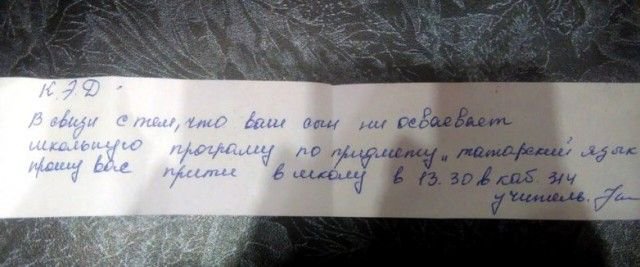 К.Э.Д.
В свизи с тем, что ваш сын ни осваевает
школьную програму по придмету „татарский язык
прошу вас притти в школу в 13.30 в каб. 314
учитель.